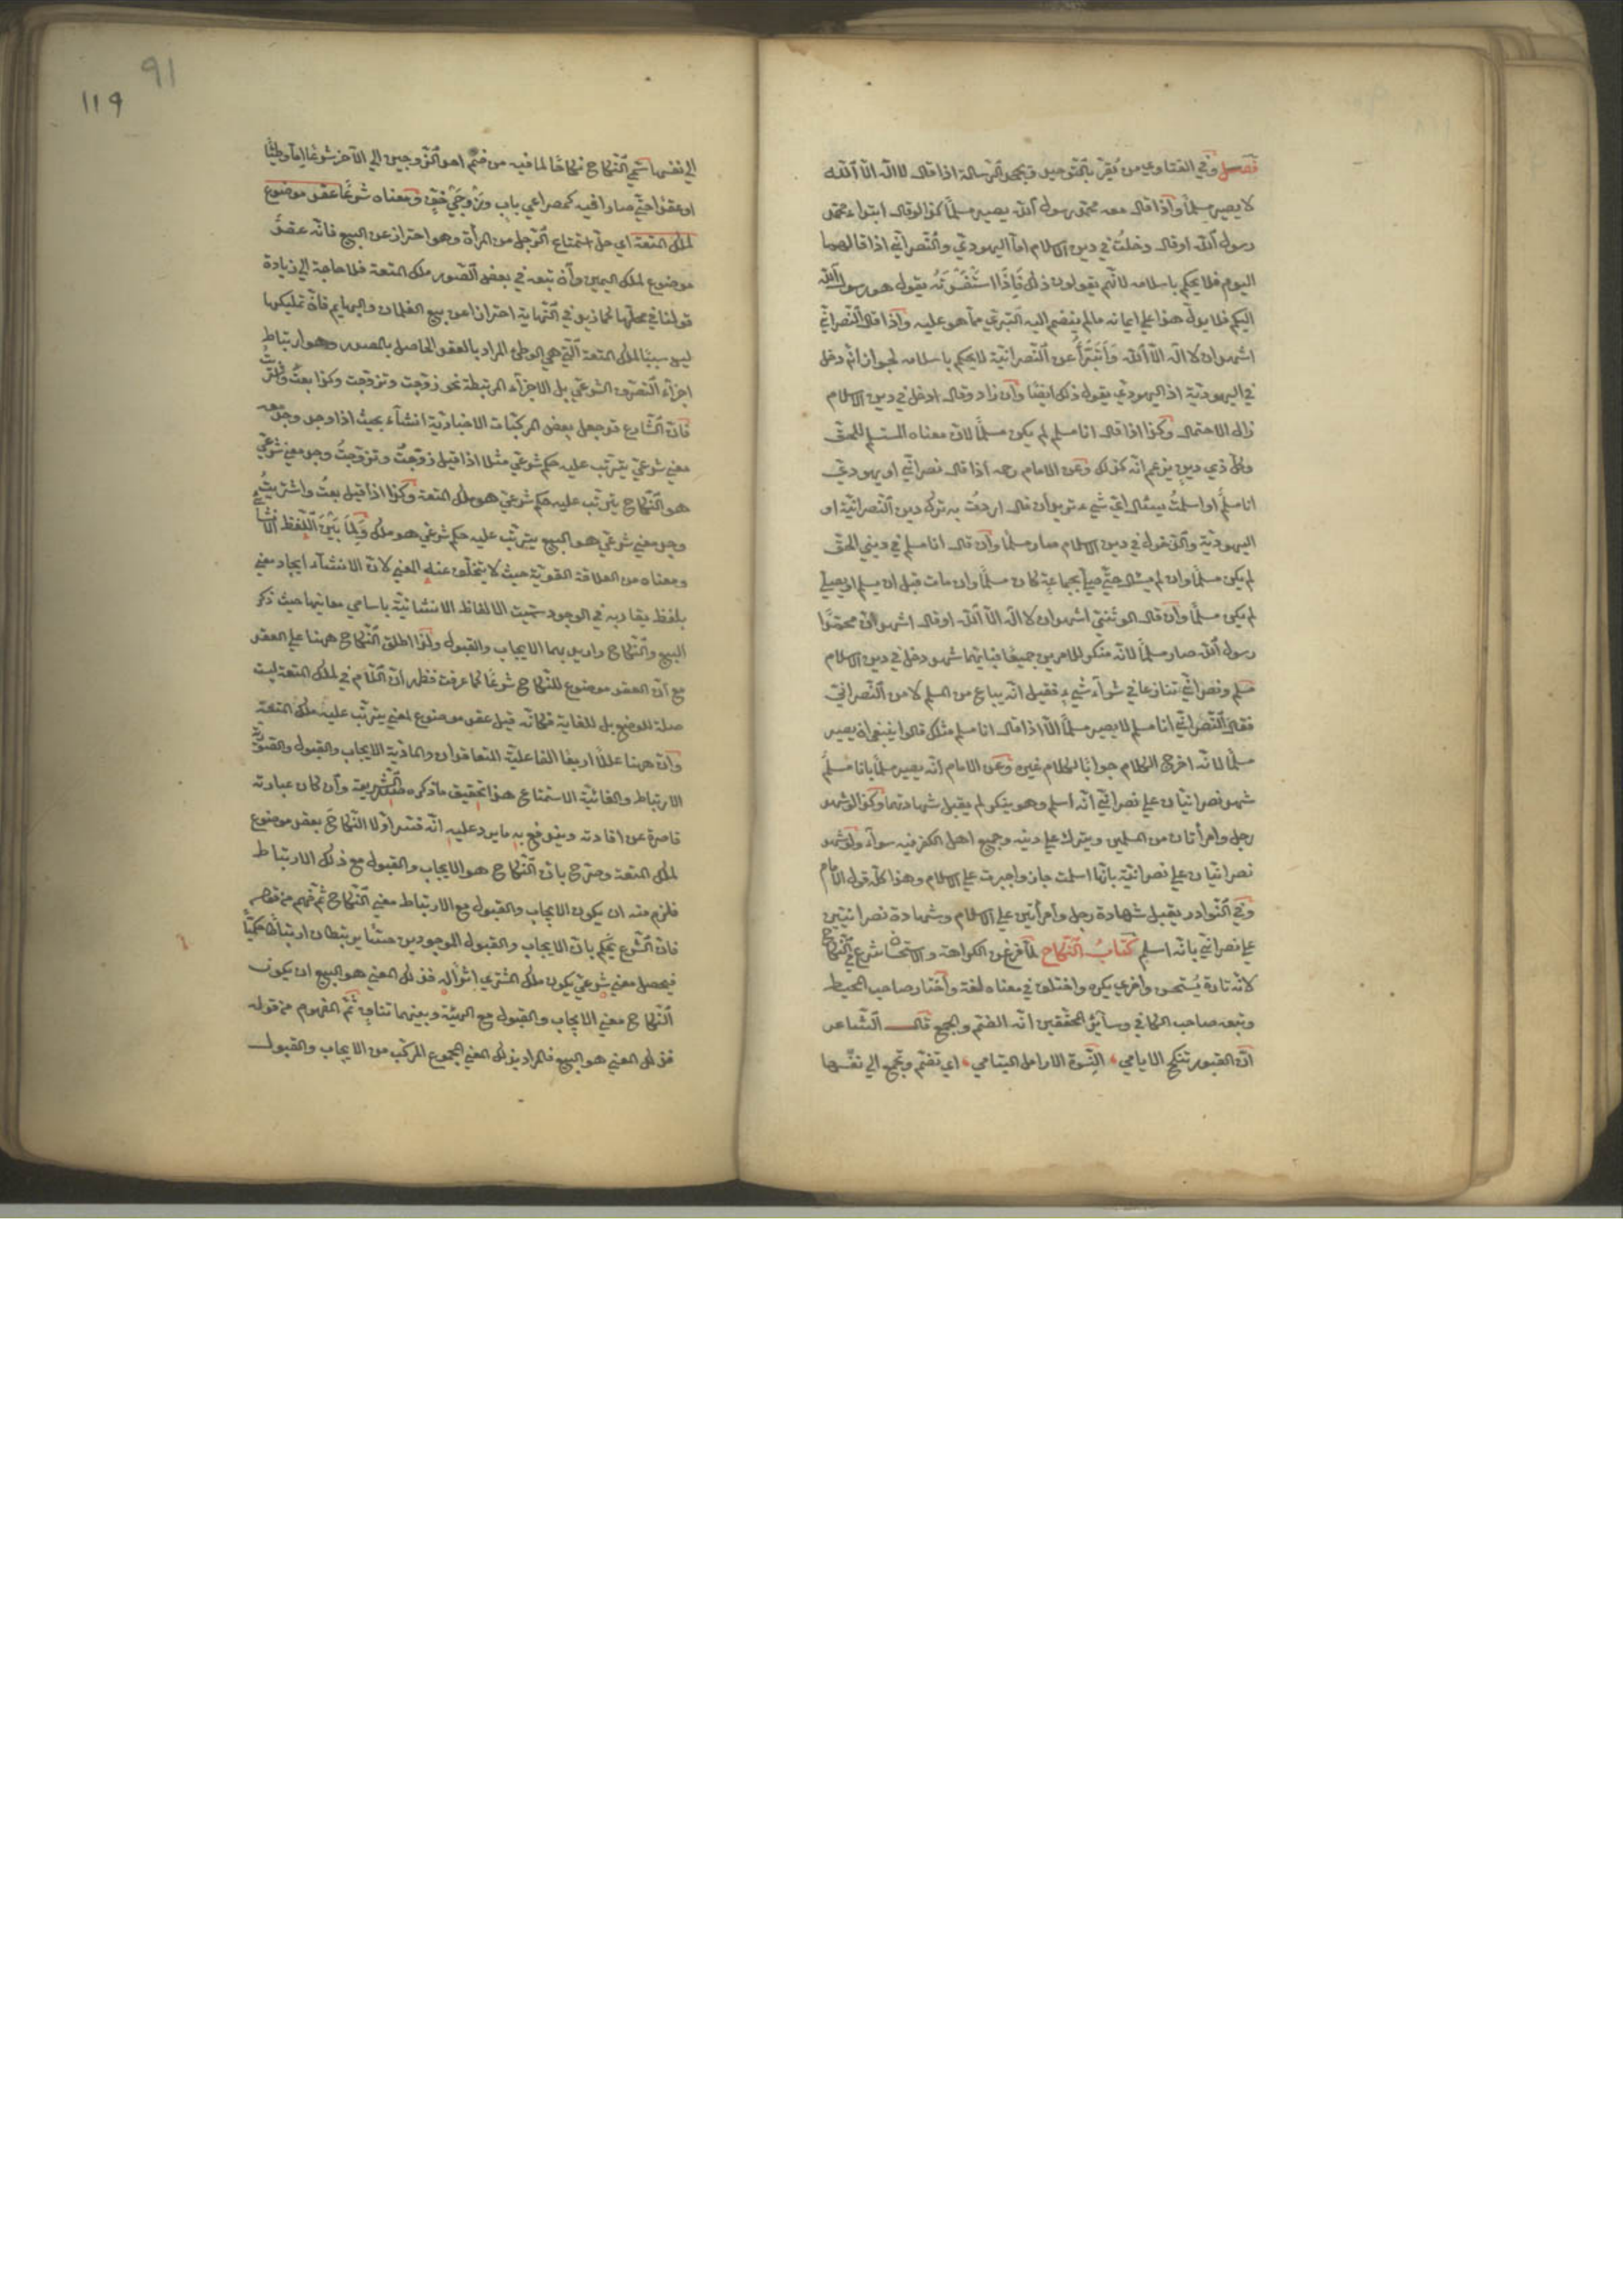 فصل وفي الفتاوي من يُقِرّ بالتّوحيد ويجحد الرّسالة اذا قال لا اله الّا الله
لا يصير مسلمًا واذا قال معه محمّد رسول الله يصير مسلمًا كذا لو قال ابتداء محمّد
رسول الله او قال دخلتُ في دين الاسلام امّا اليهوديّ والنّصرانيّ اذا قالهما
اليوم فلا يحكم باسلامه لانّهم يقولون ذلك فَاِذَا اسْتَفْسَرْتَهُ يقول هو رسول الله
اليكم فلا يدلّ هذا علي ايمانه ما لم ينضم اليه التبرّي ممّا هو عليه واذا قال النّصرانيّ
اشهد ان لا اله الّا الله وَاَتَبَرَّأُ عن النّصرانيّة لا يحكم باسلامه لجواز انّه دخل
في اليهوديّة اذ اليهوديّ يقول ذلك ايضًا وان زاد وقال ادخل في دين الاسلام
زال الاحتمال وكذا اذا قال انا مسلم لم يكن مسلمًا لانّ معناه المستسلم للحقّ
وكلّ ذي دينٍ يزعم انّه كذلك وعن الامام رحه اذا قال نصرانيّ او يهوديّ
انا مسلمٌ او اسلمتُ يسئال ايّ شيء تريد ان قال اردتُ به ترك دين النّصرانيّة او
اليهوديّة والدّخول في دين الاسلام صار مسلمًا وان قال انا مسلم في ديني الحقّ
لم يكن مسلمًا وان لم يسئال حتّي صلّي بجماعةٍ كان مسلمًا وان مات قبل ان يسلم او يصلّي
لم يكن مسلمًا وان قال الوثنيّ اشهد ان لا اله الّا الله او قال اشهد انّ محمّدًا
رسول الله صار مسلمًا لانّه منكر للامرين جميعًا فبايّهما شهد دخل في دين الاسلام
مسلم ونصرانيّ تنازعا في شرآء شيءٍ فقيل انّه يباع من المسلم لا من النّصرانيّ
فقال النّصرانيّ انا مسلم لا يصير مسلمًا الّا اذا قال انا مسلم مثلك قالوا ينبغي ان يصير
مسلمًا لانّه اخرج الكلام جوابًا لكلام غيره وعن الامام انّه يصير مسلمًا بانا مسلمٌ
شهد نصرانيّان علي نصرانيّ انّه اسلم وهو ينكر لم يقبل شهادتهما وكذا لو شهد
رجل وامرأتان من المسلمين ويترك علي دينه وجميع اهل الكفر فيه سواء ولو شهد
نصرانيّان علي نصرانيّة بانّها اسلمت جاز واجبرت علي الاسلام وهذا كلّه قول الامام
وفي النّوادر يقبل شهادة رجل وامرأتين علي الاسلام وشهادة نصرانيّين
علي نصرانيّ بانّه اسلم كتابُ النّكاح لمّا فرغ عن الكراهة والاستحسان شرع في النّكاح
لانّه تارة يُستحسن واخري يكره واختلف في معناه لغة واختار صاحب المحيط
وتبعه صاحب الكافي وسآئر المحقّقين انّه الضّم والجمع قال الشّاعر
انّ القبور تنكح الايامي النِّسْوة الارامل اليتامي اي تضّم وتجمع الي نفسها
الي نفسها سمّي النّكاح نكاحًا لما فيه من ضمّ احد الزّوجين الي الآخر شرعًا امّا وطئًا
او عقدًا حتّي صارا فيه كمصراعي بابٍ وَزَوْجَيْ خُفٍّ ومعناه شرعًا عقد موضوع
لملك المتعة اي حلّ استمتاع الرّجل من المرأة وهو احتراز عن البيع فانّه عقد
موضوع لملك اليمين وان تبعه في بعض الصّور ملك المتعة فلا حاجة الي زيادة
قولنا في محلّها كما زيد في النّهاية احترازا عن بيع الغلمان والبهايم فانّ تمليكها
ليس سببًا لملك المتعة الّتي هي الوطئ المراد بالعقد الحاصل بالمصدر وهو ارتباط
اجزآء التّصرّف الشرعيّ بل الاجزآء المرتبطة نحو زوّجت وتزوّجت وكذا بعتُ واشتريت
فانّ الشّارع قد جعل بعض المركّبات الاخباريّة انشآء بحيث اذا وجد وجد معه
معني شرعيّ يترتّب عليه حكم شرعيّ مثلا اذا قيل زوّجتُ وتزوّجتُ وجد معني شرعيّ
هو النّكاح يترتّب عليه حكم شرعيّ هو ملك المتعة وكذا اذا قيل بعتُ واشتريتُ
وجد معني شرعيّ هو البيع يترتّب عليه حكم شرعيّ هو ملك وَلِمَا بَيْنَ اللّفظ الانشائيّ
ومعناه من العلاقة القويّة حيث لا يتخلّف عنه المعني لانّ الانشآء ايجاد معني
بلفظ يقارنه في الوجود سمّيت الالفاظ الانشائيّة باسامي معانيها حيث ذكر
البيع والنّكاح واريد بهما الايجاب والقبول ولذا اطلق النّكاح ههنا علي العقد
مع انّ العقد موضوع للنّكاح شرعًا كما عرفت فظهر انّ اللّام في لملك المتعة ليست
صلة للوضع بل للغاية فكانّه قيل عقد موضوع لمعني يترتّب عليه ملك المتعة
وانّ ههنا عللًا اربعًا الفاعليّة المتعاقدان والماديّة الايجاب والقبول والصّوريّة
الارتباط والغائيّة الاستمتاع هذا تحقيق ما ذكره صدر الشّريعة وان كان عبارته
قاصرة عن افادته ويندفع به ما يرد عليه انّه فسّر اوّلا النّكاحَ بعقد موضوع
لملك المتعة وصرّح بانّ النّكاح هو الايجاب والقبول مع ذلك الارتباط
فلزم منه ان يكون الايجاب والقبول مع الارتباط معني النّكاح ثمّ فهم من قوله
فانّ الشّرع يحكم بانّ الايجاب والقبول الموجودين حسًّا يرتبطان ارتباطًا حكميًّا
فيحصل معني شرعيّ يكون ملك المشتري اثرًا له فذلك المعني هو البيع ان يكون
النّكاح معني الايجاب والقبول مع الهيئة وبينهما تنافٍ ثمّ المفهوم من قوله
فذلك المعني هو البيع فالمراد بذلك المعني المجموع المركّب من الايجاب والقبول
119
91